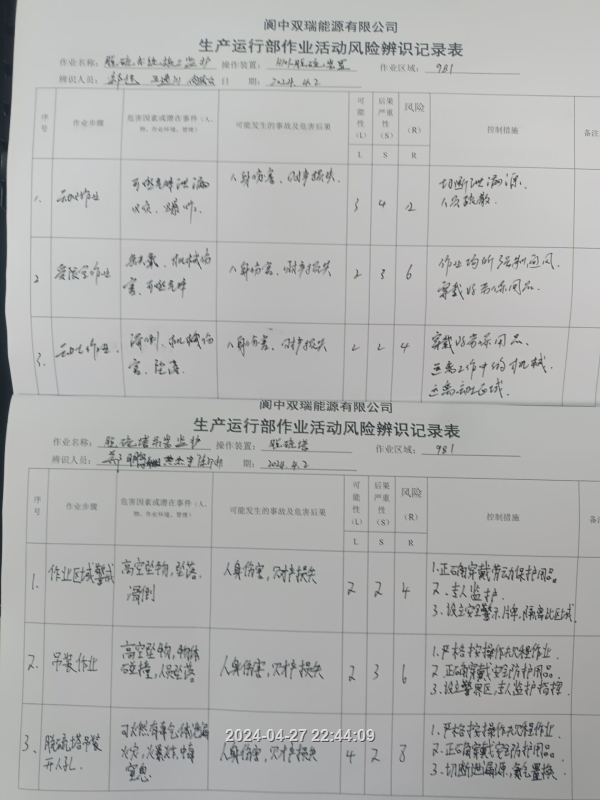 阆中双瑞能源有限公司
生产运行部作业活动风险辨识记录表
作业名称： 脱硫系统施工监护 操作装置： 脱硫装置 作业区域： 981
辨识人员： 日 期： 2024.4.2
序号 作业步骤 危害因素或潜在事件（人、物、作业环境、管理） 可能发生的事故及危害后果 可能性（L） 后果严重性（S） 风险（R） 控制措施 备注
L S R
1. 动火作业 可燃气体泄漏 火灾、爆炸. 人身伤害、财产损失. 3 4 12 切断泄漏源. 人员疏散.
2 受限空作业 机械伤害、可燃气体 人身伤害、财产损失 2 3 6 作业均所强制通风. 穿戴好劳保用品.
3. 动土作业. 滑倒、机械伤害、坠落. 人身伤害、财产损失 2 2 4 穿戴好劳保用品. 远离工作中的机械. 远离动土区域.
阆中双瑞能源有限公司
生产运行部作业活动风险辨识记录表
作业名称： 脱硫塔吊装监护 操作装置： 脱硫塔 作业区域： 981
辨识人员： 期： 2024.4.2
序号 作业步骤 危害因素或潜在事件（人、物、作业环境、管理） 可能发生的事故及危害后果 可能性（L） 后果严重性（S） 风险（R） 控制措施 备注
L S R
1. 作业区域警戒 高空坠物，坠落、滑倒 人身伤害，财产损失 2 2 4 1.正确穿戴劳动保护用品。 2.专人监护. 3.设立安全警示片牌，隔离此区域.
2. 吊装作业 高空坠物，物体碰撞，人员坠落 人身伤害，财产损失 2 3 6 1.严格按操作规程作业. 2.正确穿戴安全防护用品. 3.设立警界区，专人监护指挥.
3、 脱硫塔吊装开人孔. 可燃有毒气体泄漏 火灾，爆炸，中毒窒息 人身伤害，财产损失 4 2 8 1.严格按操作规程作业. 2.正确穿戴安全防护用品. 3.切断泄漏源，氮气置换.
2024-04-27 22:44:09